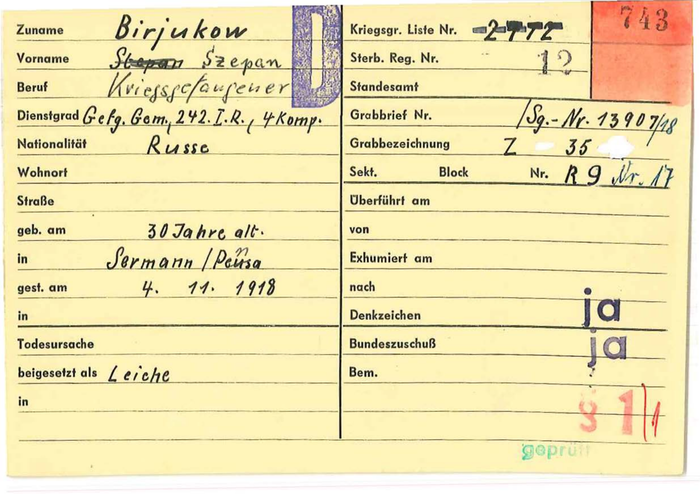 Zuname Birjukow
Vorname Stepan Szepan
Beruf Kriegsgefangener
Dienstgrad Gefg. Gem., 242. I.R., 4 Komp.
Nationalität Russe
Wohnort
Straße
geb. am 30 Jahre alt.
in Sermann / Pensa
gest. am 4. 11. 1918
in
Todesursache
beigesetzt als Leiche
in
D
743
Kriegsgr. Liste Nr.
Sterb. Reg. Nr. 12
Standesamt
Grabbrief Nr. /Sg.-Nr. 13907/18
Grabbezeichnung Z 35
Sekt. Block Nr. R 9 Nr. 17
Überführt am
von
Exhumiert am
nach
Denkzeichen ja
Bundeszuschuß ja
Bem.
§ 1/1
geprüft